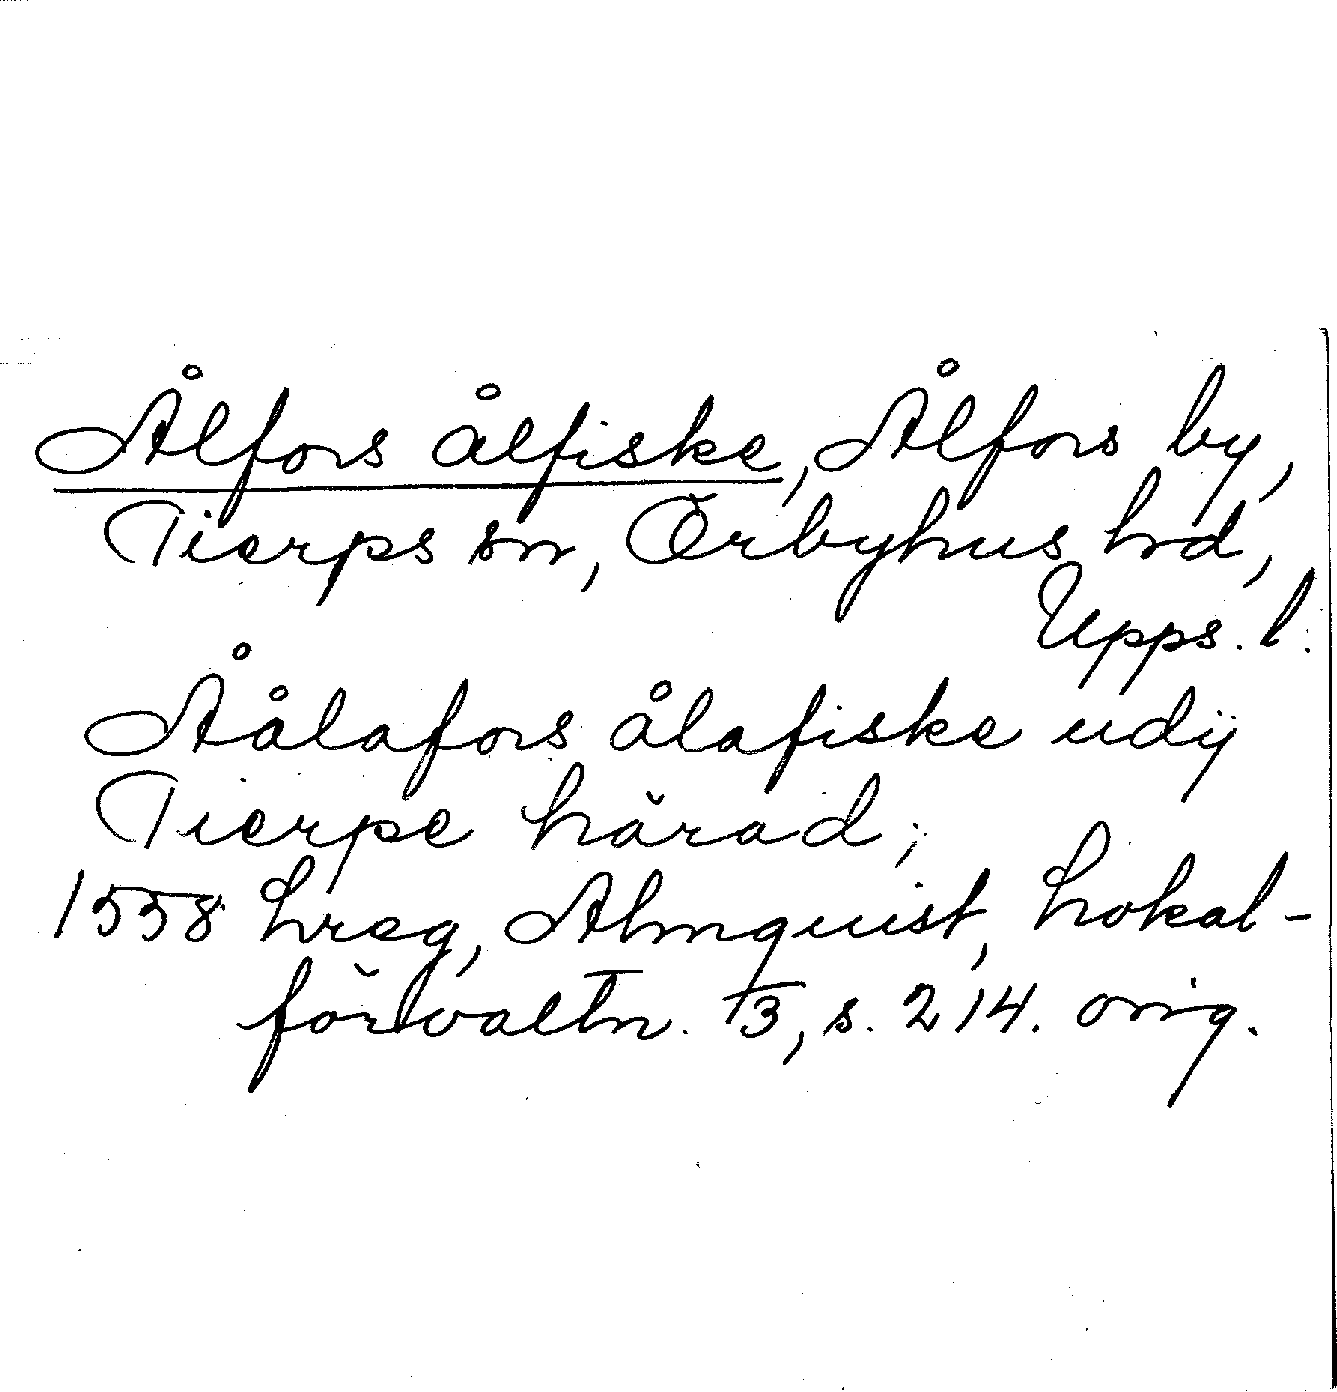 Ålfors ålfiske, Ålfors by,
Tierps sn, Örbyhus hd,
Upps. l.
Åålafors ålafiske udÿ
Tierpe härad;
1558 hreg, Almquist, Lokal-
förvaltn. 3, s. 214. orig.